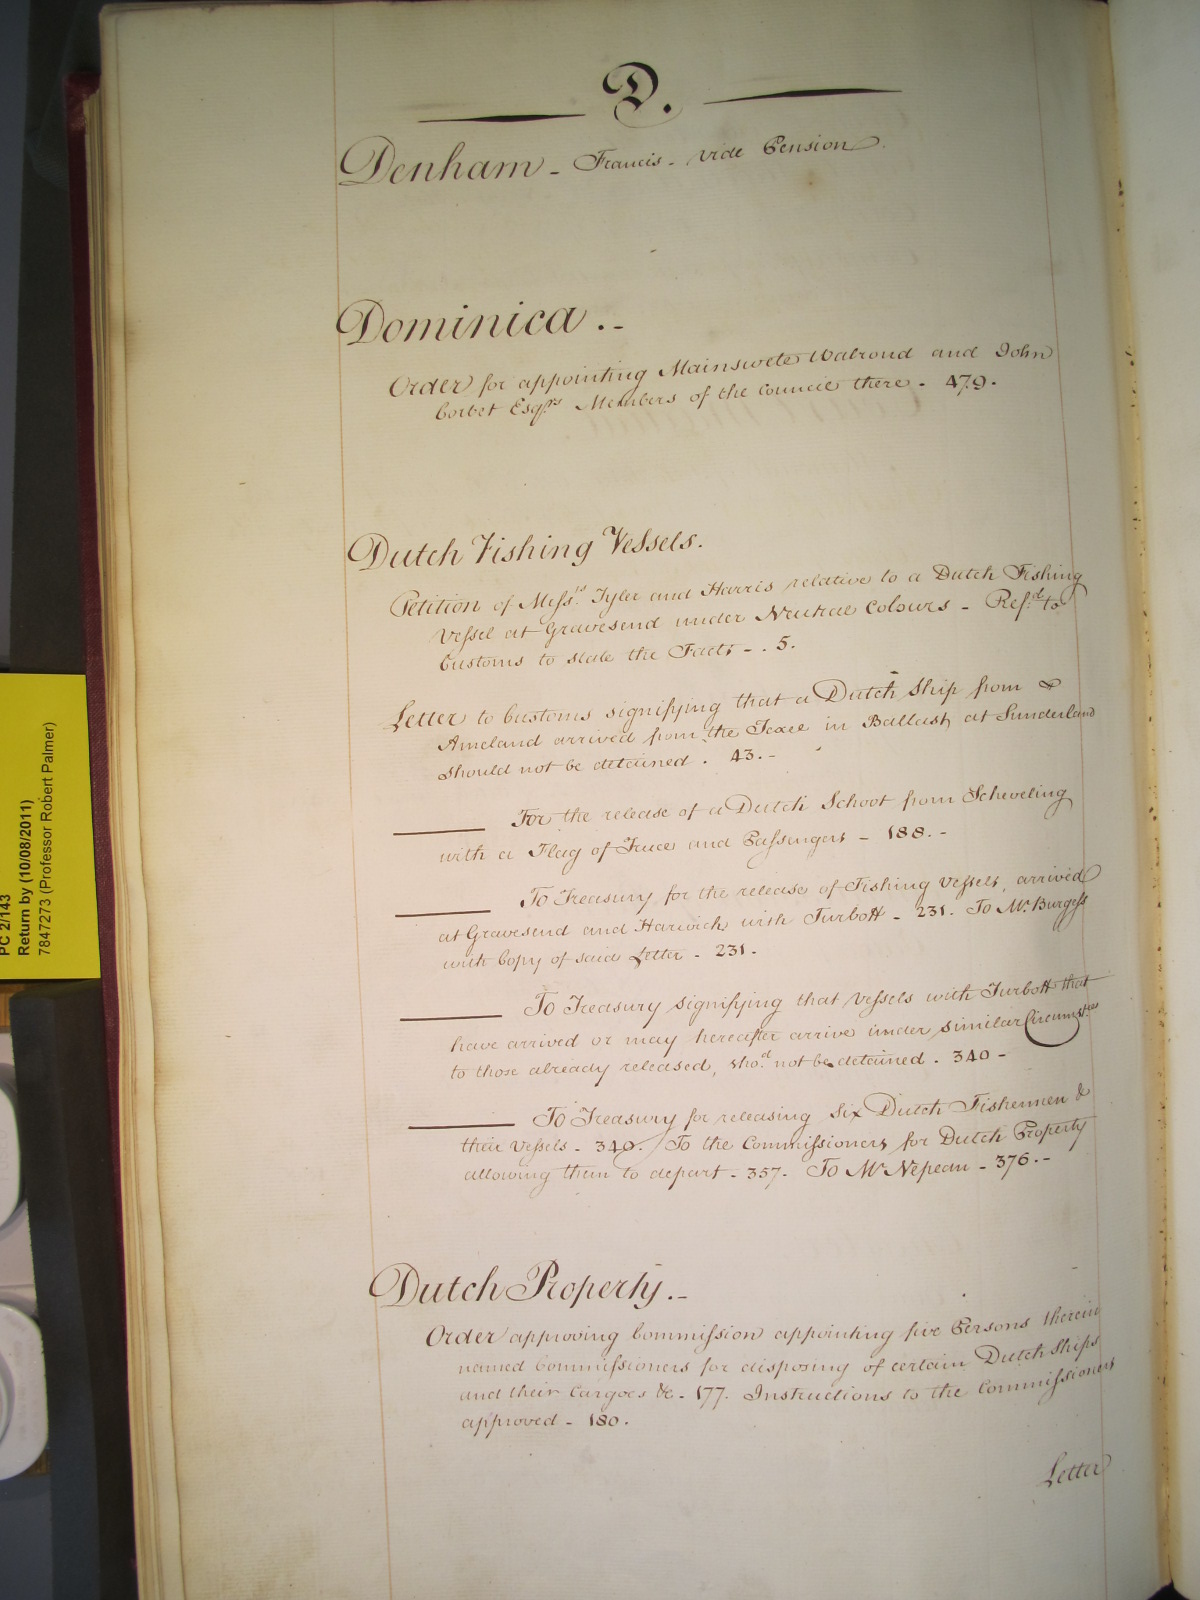 D.
Denham - Francis - vide Pension
Dominica . -
Order for appointing Mainswete Walrond and John
Corbet Esqrs. Members of the Council there - 479.
Dutch Fishing Vessels.
Petition of Messrs. Tyler and Harris relative to a Dutch Fishing
Vessel at Gravesend under Neutral Colours - Refd. to
Customs to state the Facts - . 5.
Letter to Customs signifying that a Dutch Ship from &
Ameland arrived from the Texel in Ballast at Sunderland
should not be detained . 43. -
For the release of a Dutch Schoot from Scheveling
with a Flag of Truce and Passengers - 188. -
To Treasury for the release of Fishing Vessels, arrived
at Gravesend and Harwich with Turbott - 231. To Mr. Burgess
with Copy of said Letter - 231.
To Treasury signifying that Vessels with Turbott that
have arrived or may hereafter arrive under similar Circumstces
to those already released, shod. not be detained . 340 -
To Treasury for releasing Six Dutch Fishermen &
their Vessels - 340. / To the Commissioners for Dutch Property
allowing them to depart - 357. To Mr. Nepean - 376. -
Dutch Property . -
Order approving Commission appointing five Persons therein
named Commissioners for disposing of certain Dutch Ships
and their Cargoes &c. - 177. Instructions to the Commissioners
approved - 180.
Letter
PC 2/143
Return by (10/08/2011)
7847273 (Professor Robert Palmer)